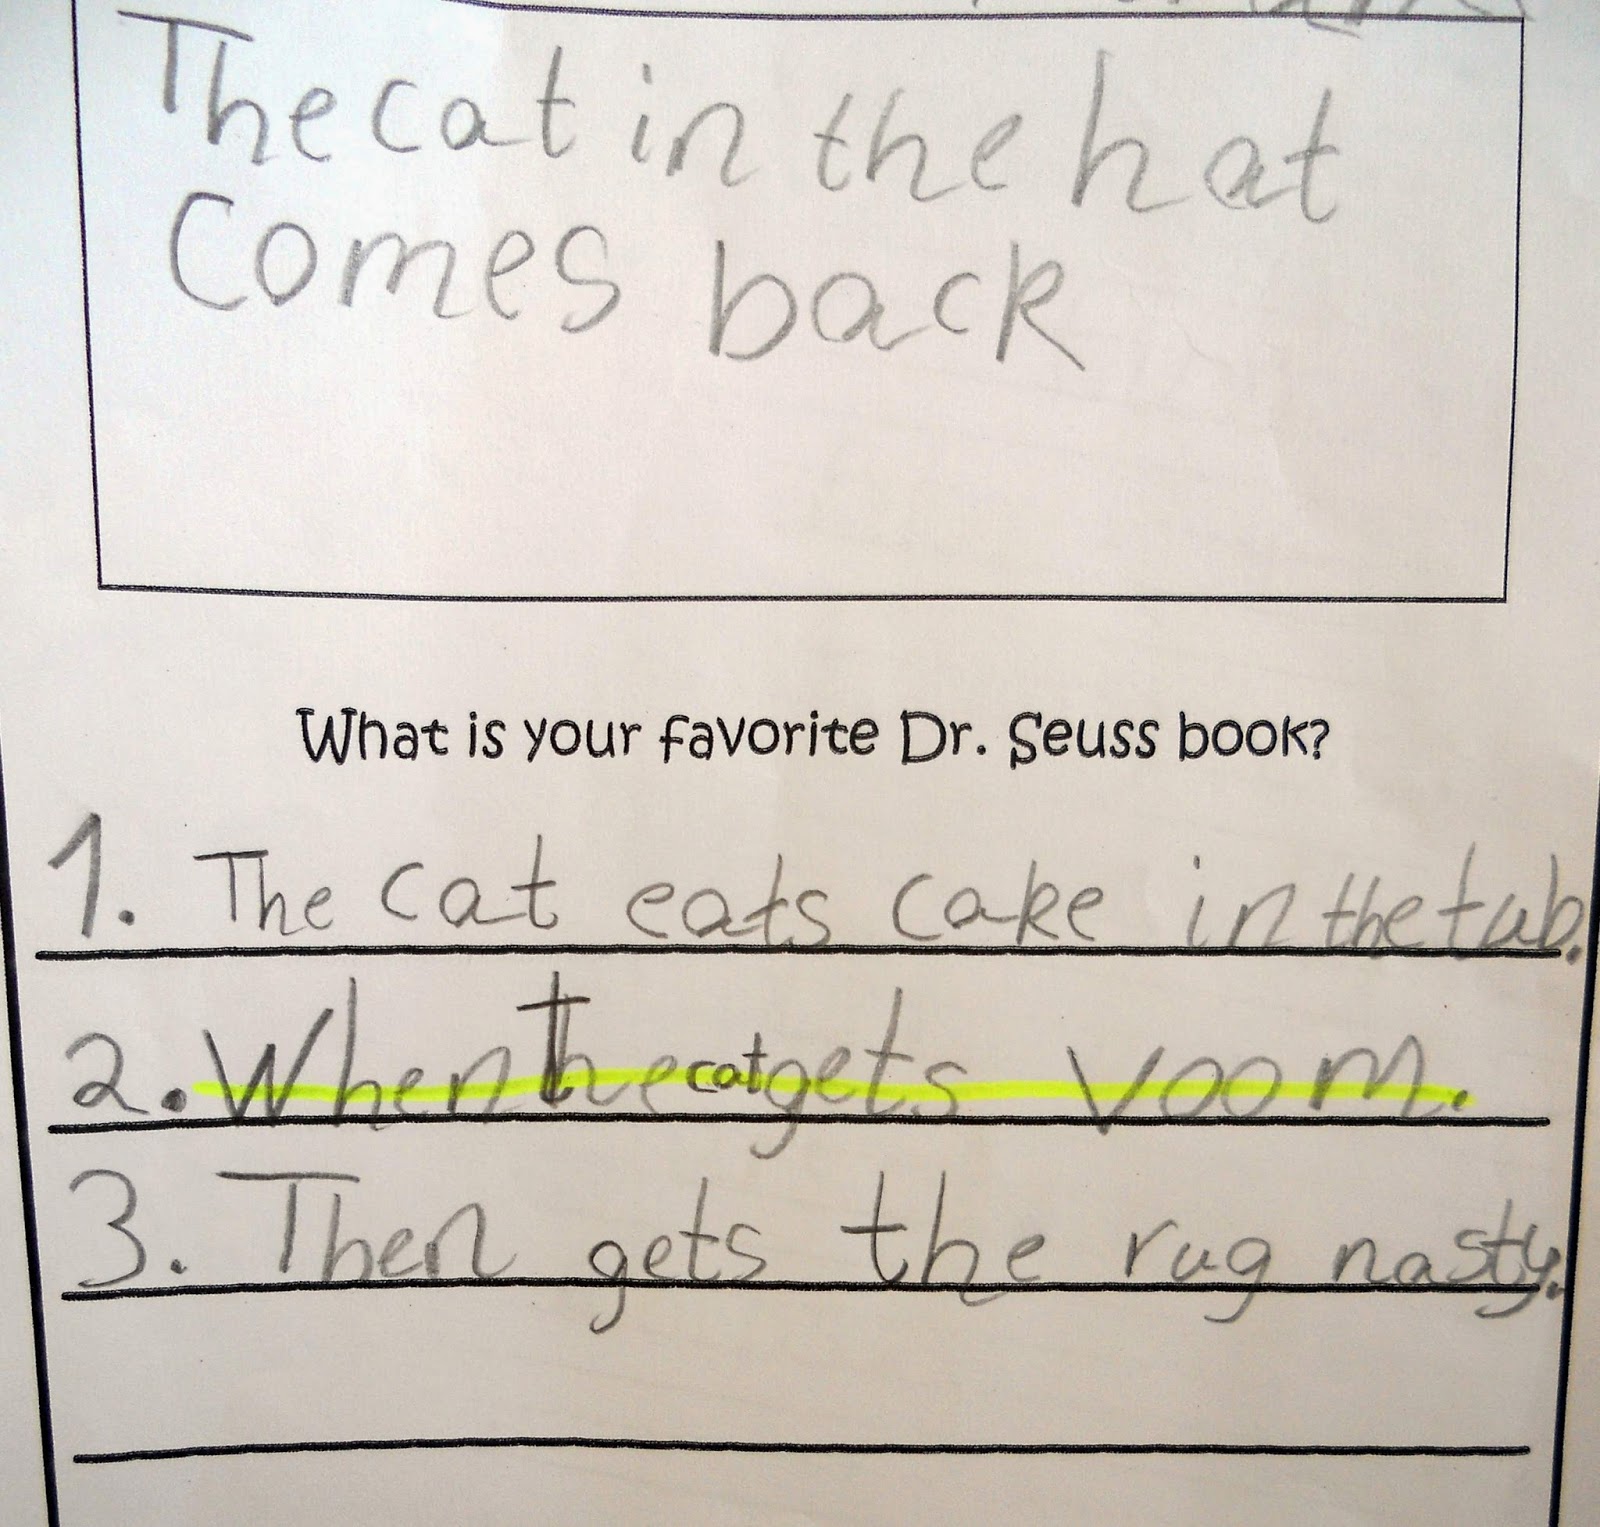 The cat in the hat
Comes back
What is your favorite Dr. Seuss book?
1. The cat eats cake in the tub.
2. When the cat gets voom.
3. Then gets the rug nasty.